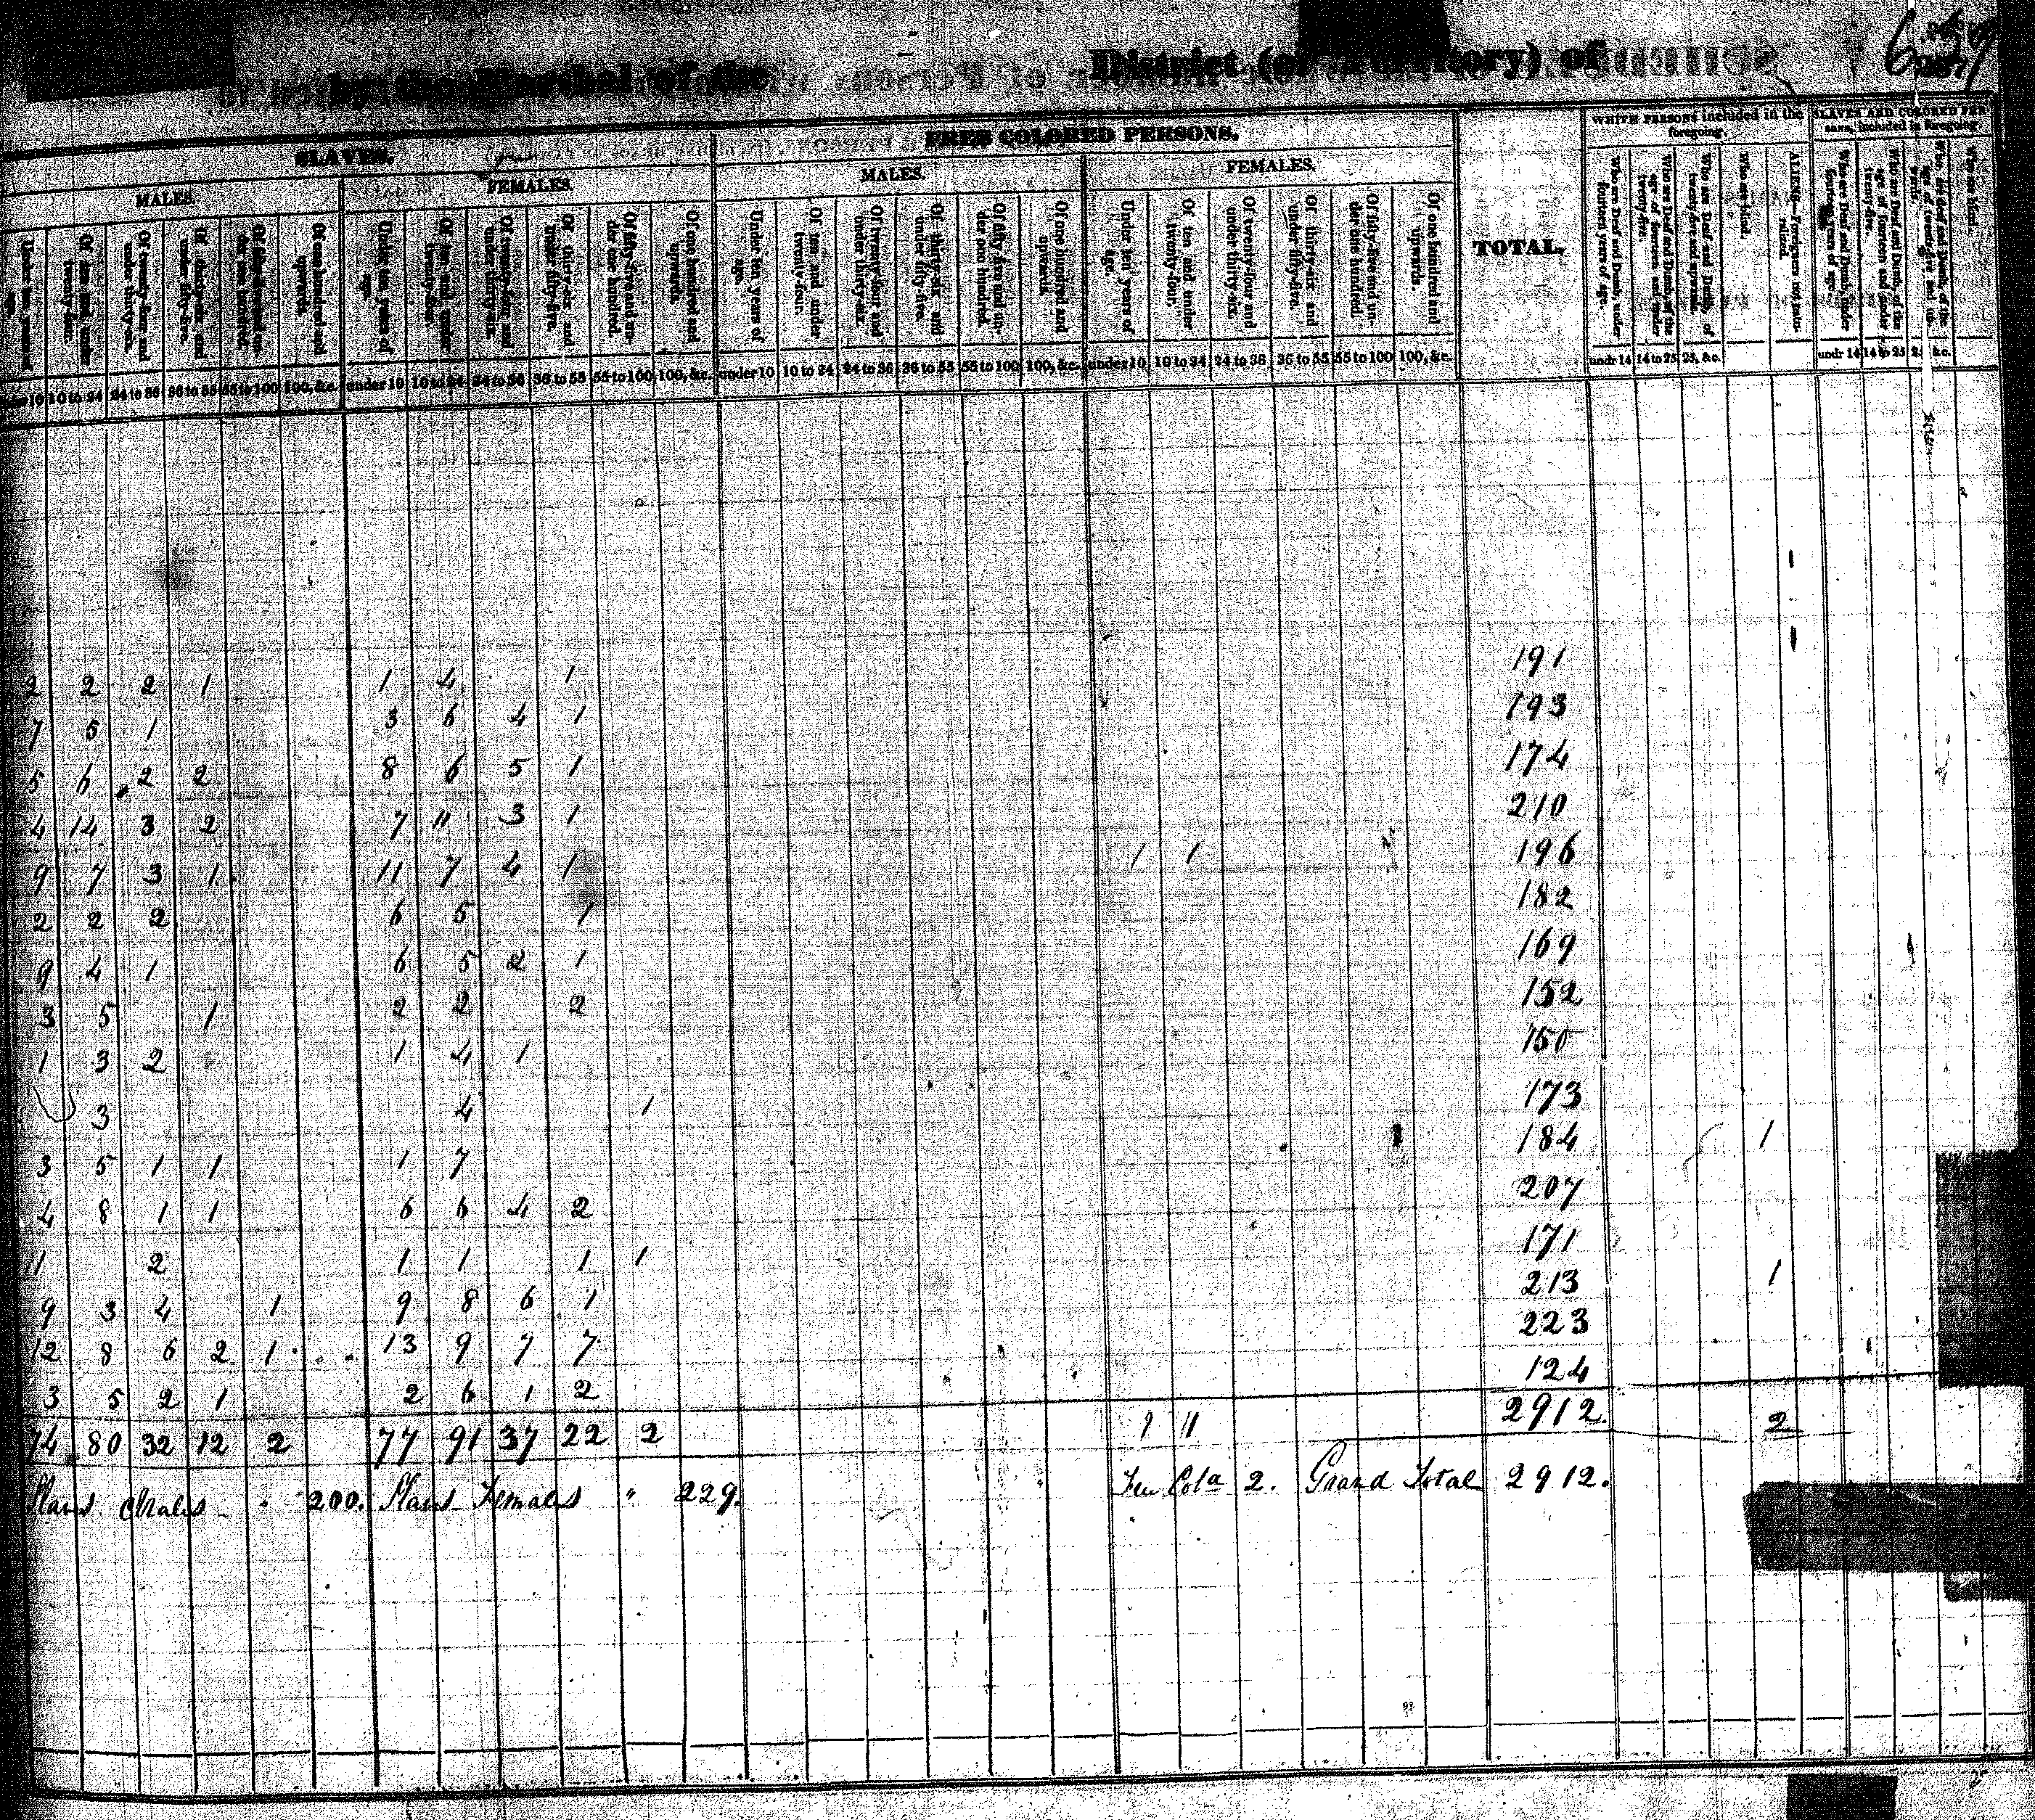 by the Marshal of the District (or Territory) of
SLAVES. FREE COLORED PERSONS. TOTAL. WHITE PERSONS included in the foregoing. SLAVES AND COLORED PERSONS, included in foregoing
MALES. FEMALES. MALES. FEMALES.
Under ten years of age. Of ten and under twenty-four. Of twenty-four and under thirty-six. Of thirty-six and under fifty-five. Of fifty-five and under one hundred. Of one hundred and upwards. Under ten years of age. Of ten and under twenty-four. Of twenty-four and under thirty-six. Of thirty-six and under fifty-five. Of fifty-five and under one hundred. Of one hundred and upwards. Under ten years of age. Of ten and under twenty-four. Of twenty-four and under thirty-six. Of thirty-six and under fifty-five. Of fifty-five and under one hundred. Of one hundred and upwards. Under ten years of age. Of ten and under twenty-four. Of twenty-four and under thirty-six. Of thirty-six and under fifty-five. Of fifty-five and under one hundred. Of one hundred and upwards. Who are Deaf and Dumb, under fourteen years of age. Who are Deaf and Dumb, of the age of fourteen and under twenty-five. Who are Deaf and Dumb, of twenty-five and upwards. Who are blind. ALIENS—Foreigners not naturalized. Who are Deaf and Dumb, under fourteen years of age. Who are Deaf and Dumb, of the age of fourteen and under twenty-five. Who are Deaf and Dumb, of the age of twenty-five and upwards. Who are blind.
10 10 to 24 24 to 36 36 to 55 55 to 100 100, &c. under 10 10 to 24 24 to 36 36 to 55 55 to 100 100, &c. under 10 10 to 24 24 to 36 36 to 55 55 to 100 100, &c. under 10 10 to 24 24 to 36 36 to 55 55 to 100 100, &c. undr 14 14 to 25 25, &c. undr 14 14 to 25 25 &c.
2 2 2 1 1 4 1 191
7 5 1 3 6 4 1 193
5 6 2 2 8 6 5 1 174
4 14 3 2 7 11 3 1 210
9 7 3 1 11 7 4 1 1 1 196
2 2 2 6 5 1 182
9 4 1 6 5 2 1 169
3 5 1 2 2 2 152
1 3 2 1 4 1 150
3 4 1 173
3 5 1 1 1 7 184 1
4 8 1 1 6 6 4 2 207
11 2 1 1 1 1 171
9 3 4 1 9 8 6 1 213 1
12 8 6 2 1 13 9 7 7 223
3 5 2 1 2 6 1 2 124
74 80 32 12 2 77 91 37 22 2 1 11 2912. 2
Slaves Males 200. Slaves Females " 229. Free Cold 2. Grand Total 2912.